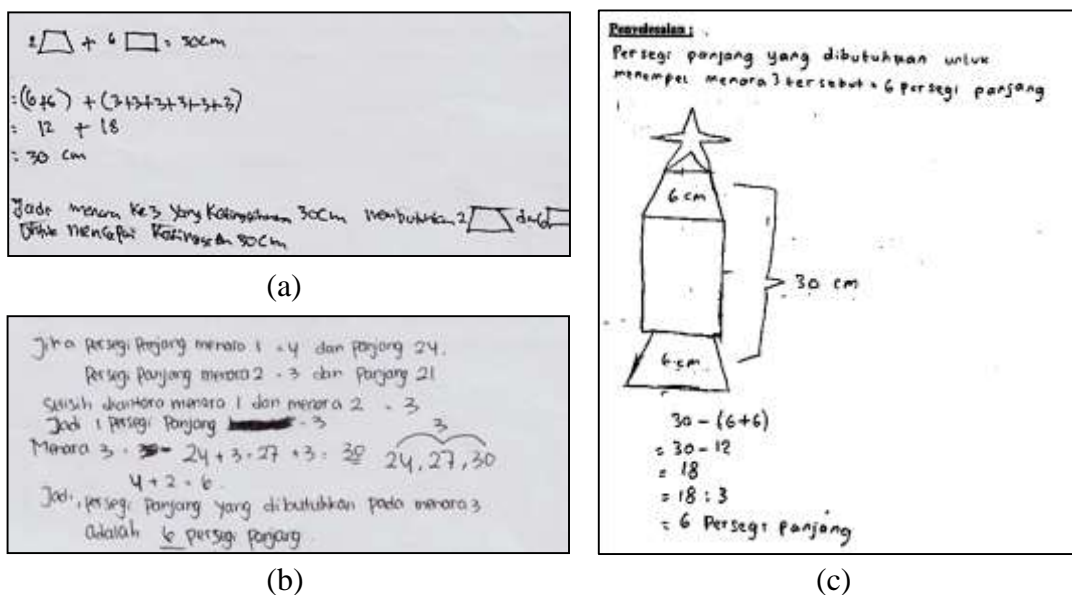 2 + 6 = 30cm
= (6+6) + (3+3+3+3+3+3)
= 12 + 18
= 30 cm
Jadi menara ke 3 yang Ketinggiannya 30cm membutuhkan 2 dan 6
Untuk mencapai Ketinggian 30cm
(a)
Jika persegi panjang menara 1 = 4 dan panjang 24.
Persegi panjang menara 2 = 3 dan panjang 21
Selisih diantara menara 1 dan menara 2 = 3
Jadi 1 persegi panjang = 3
Menara 3 = 24 + 3 = 27 + 3 = 30
3
24, 27, 30
4 + 2 = 6
Jadi, persegi panjang yang dibutuhkan pada menara 3
adalah 6 persegi panjang
(b)
Penyelesaian :
Persegi panjang yang dibutuhkan untuk
menempel menara 3 tersebut = 6 persegi panjang
6 cm
30 cm
6 cm
30 - (6+6)
= 30 - 12
= 18
= 18 : 3
= 6 Persegi panjang
(c)